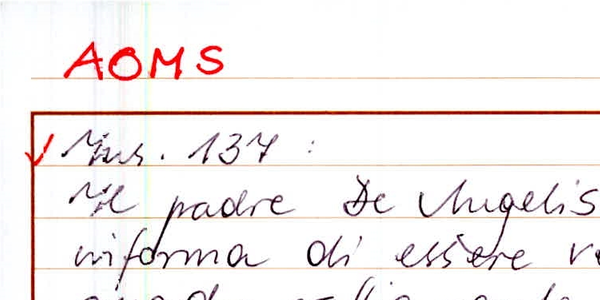 AOMS
Ins. 137 :
Il padre De Angelis
informa di essere